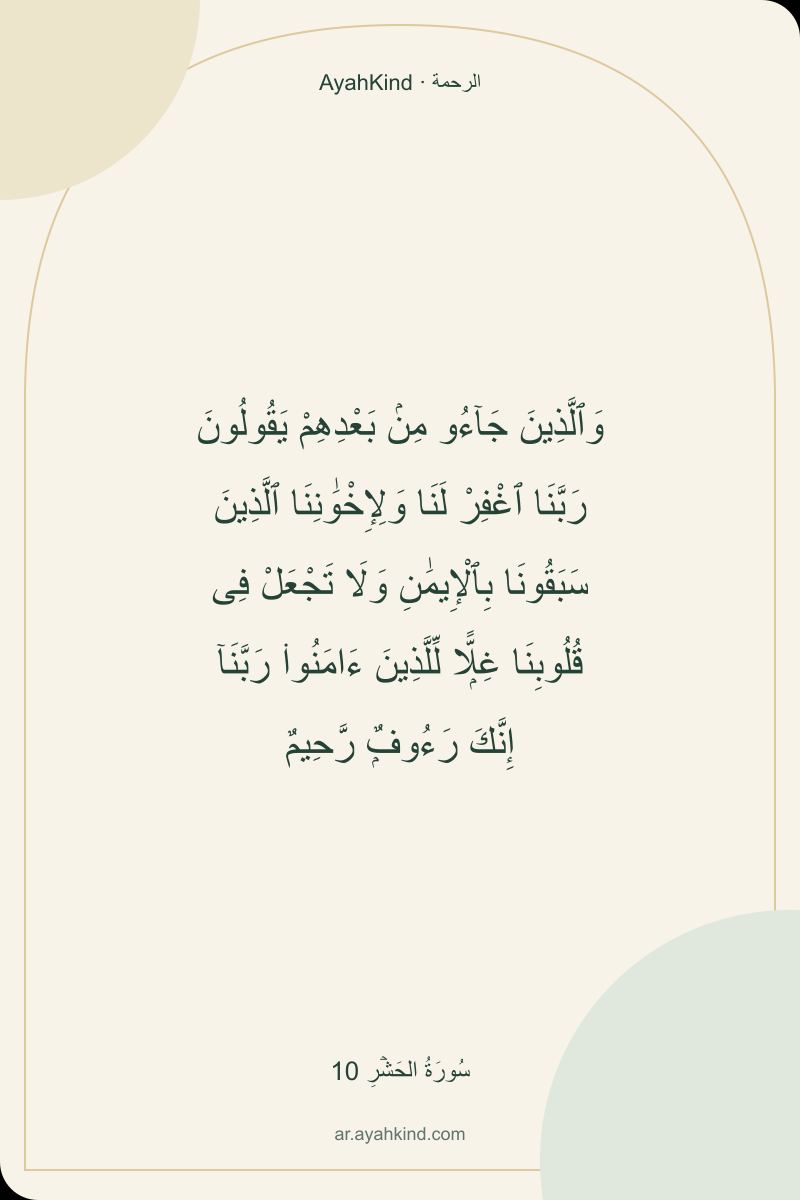 AyahKind · الرحمة
وَٱلَّذِينَ جَآءُو مِنۢ بَعْدِهِمْ يَقُولُونَ
رَبَّنَا ٱغْفِرْ لَنَا وَلِإِخْوَٰنِنَا ٱلَّذِينَ
سَبَقُونَا بِٱلْإِيمَٰنِ وَلَا تَجْعَلْ فِى
قُلُوبِنَا غِلًّۭا لِّلَّذِينَ ءَامَنُوا۟ رَبَّنَآ
إِنَّكَ رَءُوفٌۭ رَّحِيمٌ
سُورَةُ الحَشۡرِ 10
ar.ayahkind.com